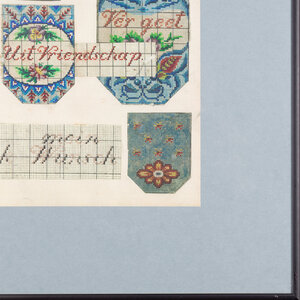 Ver geet
Uit Vriendschap.
mein
Wunsch